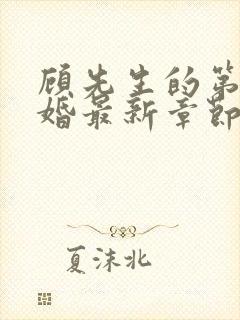 顾先生的第
婚最新章节
夏沫北